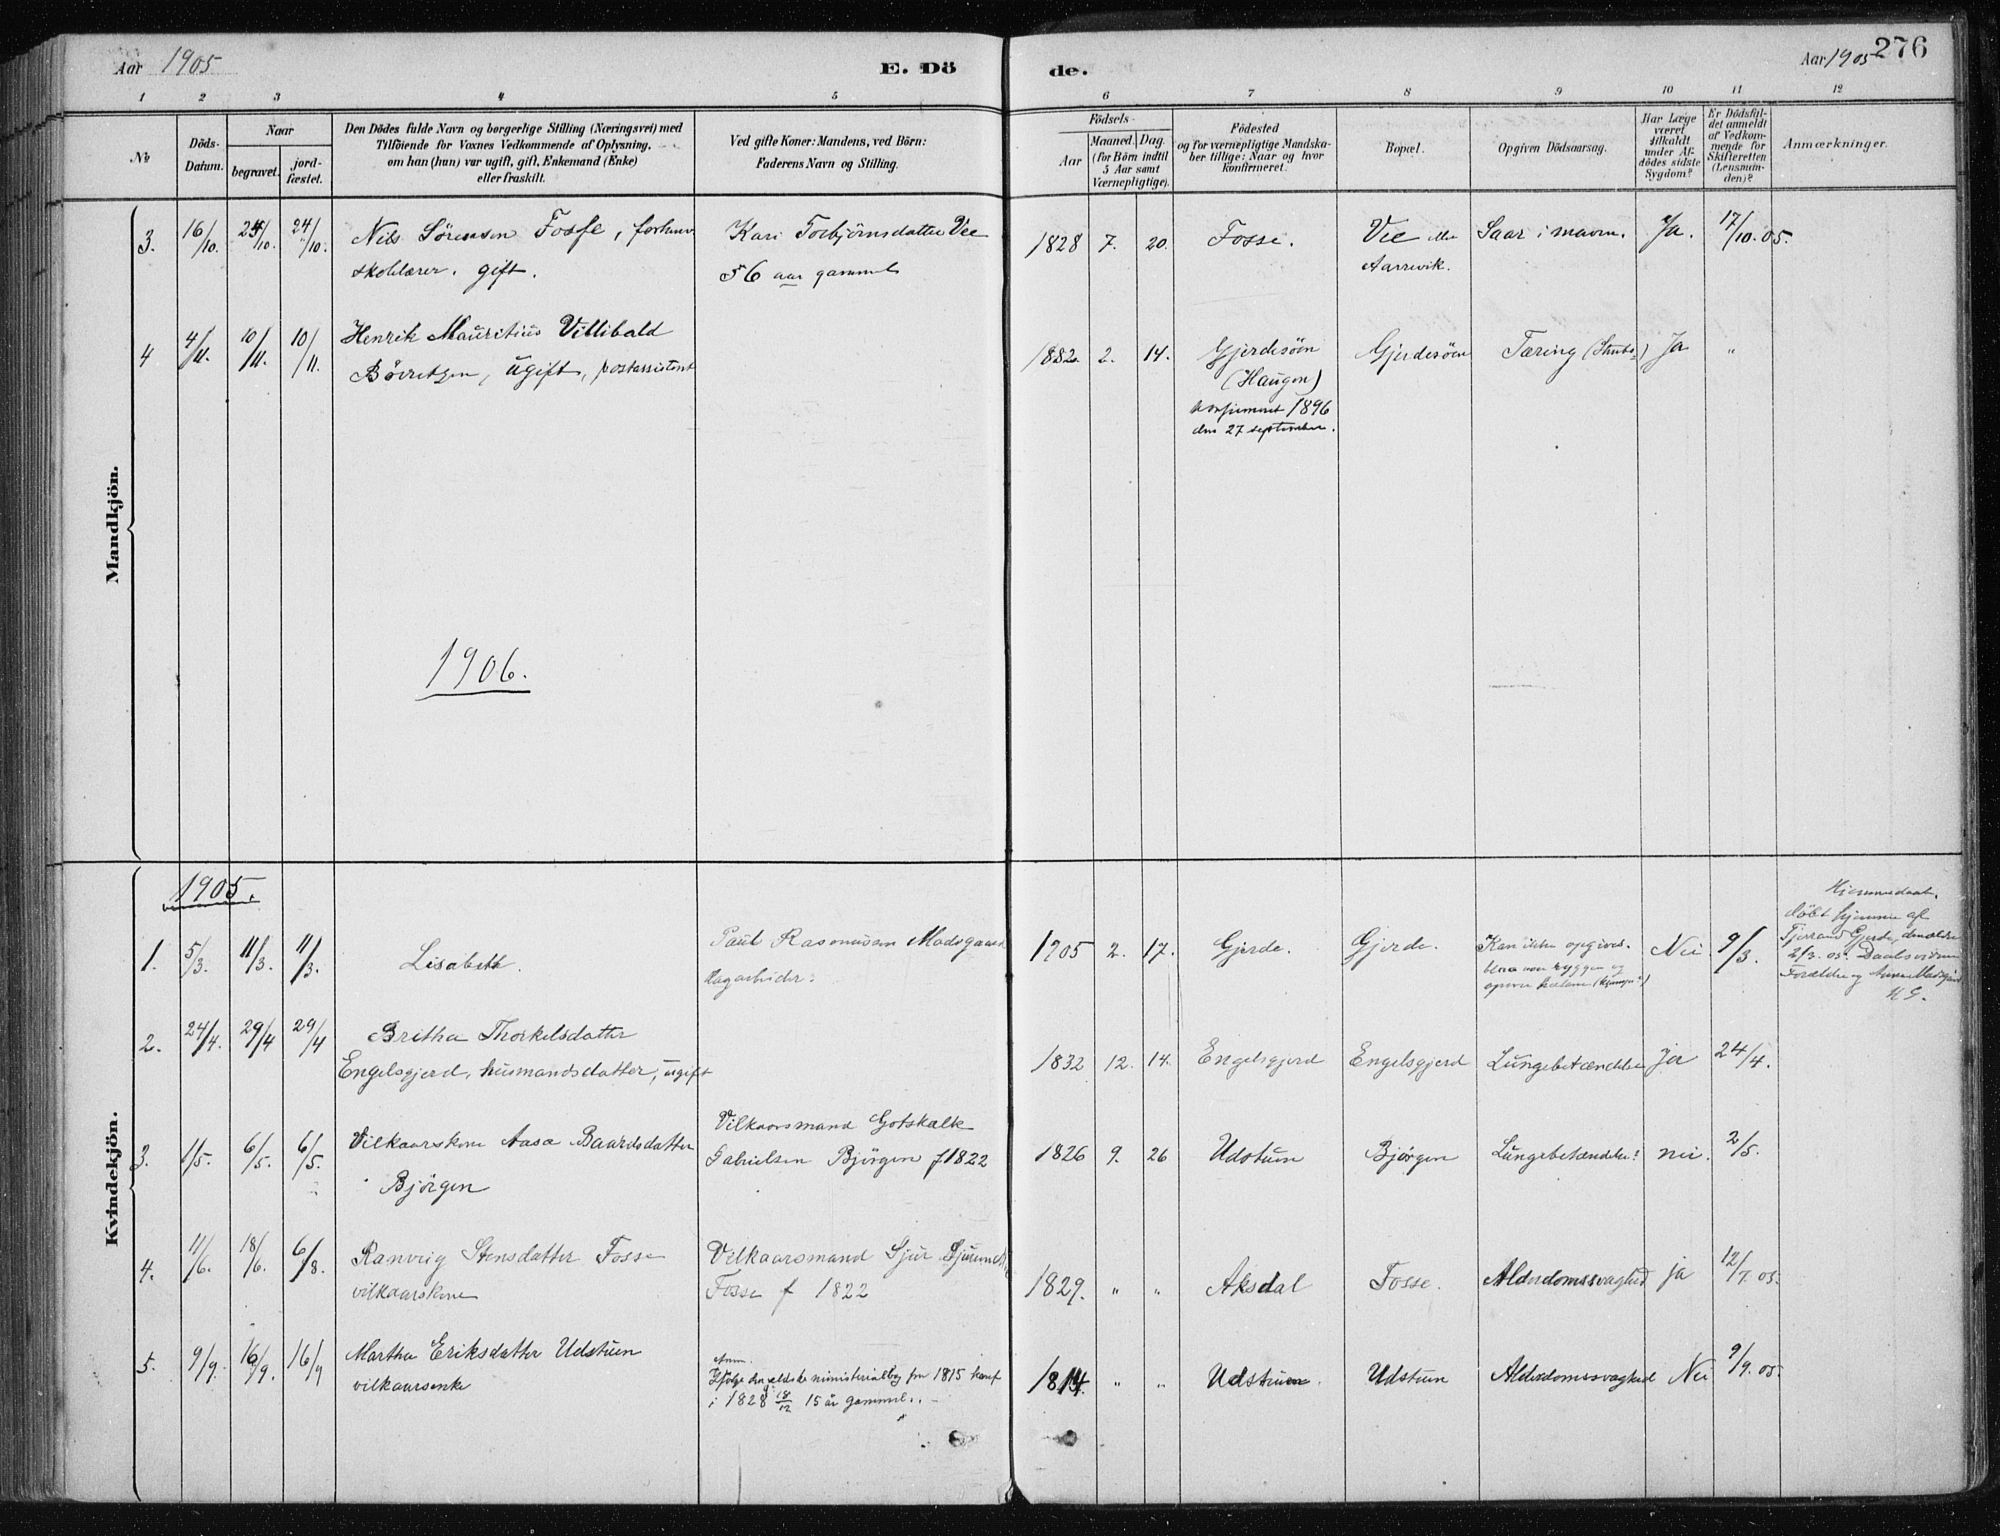 Aar 1905
E. Dö
de.
Aar 1905
276
1 2 3 4 5 6 7 8 9 10 11 12
No
Döds-
Datum.
Naar
begravet.
jord-
fæstet.
Den Dödes fulde Navn og borgerlige Stilling (Næringsvei) med
Tilföiende for Voxnes Vedkommende af Oplysning,
om han (hun) var ugift, gift, Enkemand (Enke)
eller fraskilt.
Ved gifte Koner: Mandens, ved Börn:
Faderens Navn og Stilling.
Födsels-
Aar
Maaned. Dag.
(for Börn indtil
5 Aar samt
Værnepligtige).
Födested
og for værnepligtige Mandska-
ber tillige: Naar og hvor
konfirmeret.
Bopæl.
Opgiven Dödsaarsag.
Har Læge
været
tilkaldt
under Af-
dödes sidste
Sygdom?
Er Dödsfal-
det anmeldt
af Vedkom-
mende for
Skifteretten
(Lensman-
den)?
Anmærkninger.
Mandkjön.
3. 16/10. 24/10. 24/10. Nils Sörensen Fosse, forhenv Kari Torbjörnsdatter Vee 1828 7. 20. Fosse. Vee eller Saar i maven. Ja. 17/10.05.
skolelærer. gift. 56 aar gammel Aarrevik.
4 4/11. 10/11. 10/11. Henrik Mauritius Villibald 1882. 2. 14. Gjerdesöen Gjerdesöen Tæring (Strube-) Ja "
Bövretsen, ugift, postassistent (Haugen)
konfirmeret 1896
den 27 september.
1906.
Kvindekjön.
1905.
1. 5/3. 11/3. 11/3. Lisabeth. Paul Rasmussen Madsgaard 1905 2. 17. Gjerde. Gjerde. Kan ikke opgives. Nei 9/3.
Dagarbeider. blaa over ryggen og
Hjemmedaab.
döbt hjemme af
Tjerrand Gjerde,
2/3. 05.
Forældre og
2. 24/4. 29/4 29/4 Britha Thorkelsdatter
Engelsgjerd, husmandsdatter, ugift 1832 12. 14. Engelsgjerd Engelsgjerd Lungebetændelse Ja 24/4.
3. 1/5. 6/5. 6/5. Vilkaarskone Aasa Baardsdatter Vilkaarsmand Gotskalk
Björgen Gabrielsen Björgen f 1822 1826 9. 26 Udstuen Björgen Lungebetændelse? nei. 2/5.
4. 11/6. 18/6. 6/8. Ranveig Stensdatter Fosse Vilkaarsmand Sjur Sjursen
vilkaarskone Fosse f 1822 1829. " " Aksdal Fosse. Alderdomssvaghed ja 12/7.05.
5. 9/9. 16/9. 16/9 Martha Eriksdatter Udstuen Anm.
vilkaarsenke Ifölge den ældste ministerialbog fra 1815 konf 1814. " " Udstuen. Udstuen Alderdomssvaghed Nei 9/9.05.
i 1828 15 år gammel.